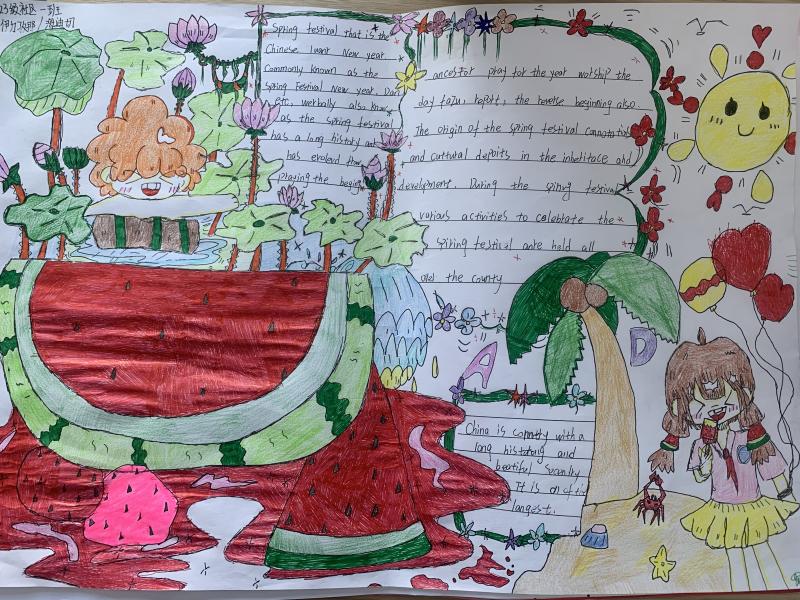 Spring festival that is the
Chinese lunar New year
Commonly known as the
Spring Festival New year, Day
etc, werbally also know
as the spring festival
has a long history and
has evoleud from
praying the begin
ancestor pray for the year worship the
day the reverse beginning also
The origin of the spring festival
and cultural deposits in the and
development. During the spirng festival
various activities to celebrate the
Spiring festival are hold all
and the county
A
D
China is country with a
long and
beatiful
It is on of
langest.